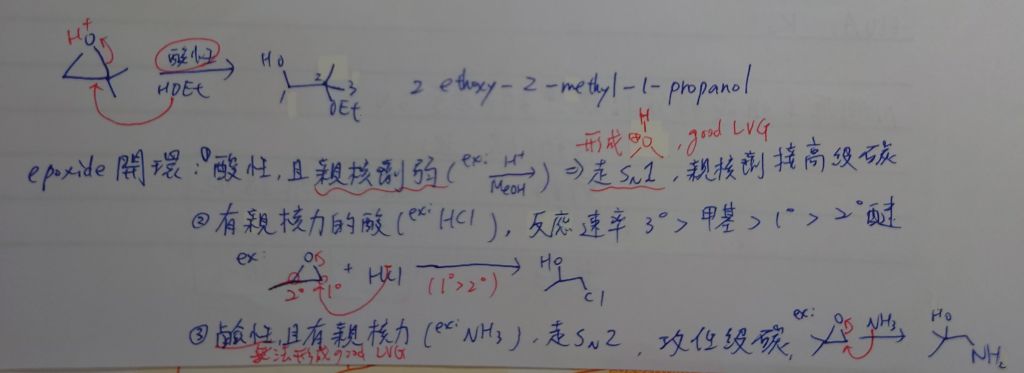 H⁺
O
酸性
HOEt
HO
1
2
3
OEt
2 ethoxy-2-methyl-1-propanol
H
形成 ⊕O, good LVG
epoxide 開環: ① 酸性, 且親核劑弱 (ex: H⁺ MeOH) ⇒ 走 SN1, 親核劑接高級碳
② 有親核力的酸 (ex: HCl), 反応速率 3° > 甲基 > 1° > 2° 醚
ex: O + HCl (1°>2°) HO
2° 1° Cl
③ 鹼性, 且有親核力 (ex: NH₃), 走 SN2, 攻低級碳, ex: O NH₃ HO
無法形成 good LVG NH₂